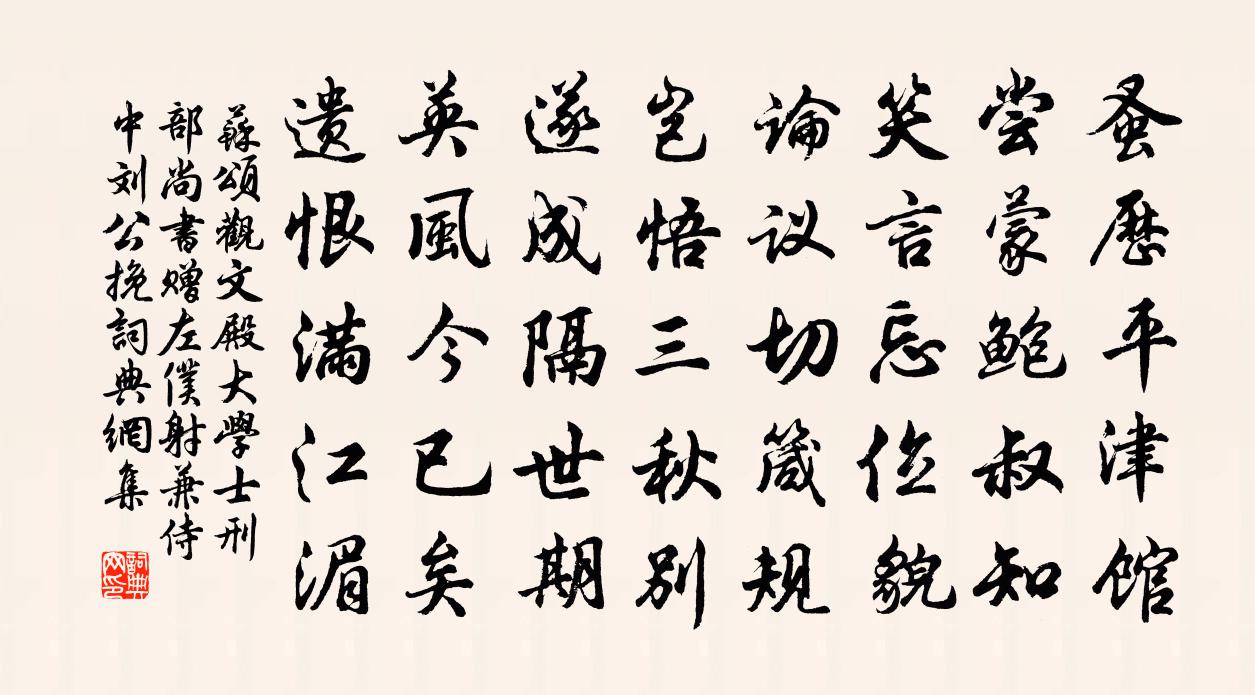 蚤歷平津馆
嘗蒙鮑叔知
笑言忘位貌
论议切箴规
岂悟三秋别
遂成隔世期
英風今已矣
遗恨满江湄
蘇頌觀文殿大學士刑
部尚書赠左僕射兼侍
中刘公挽詞典網集
詞典
网印